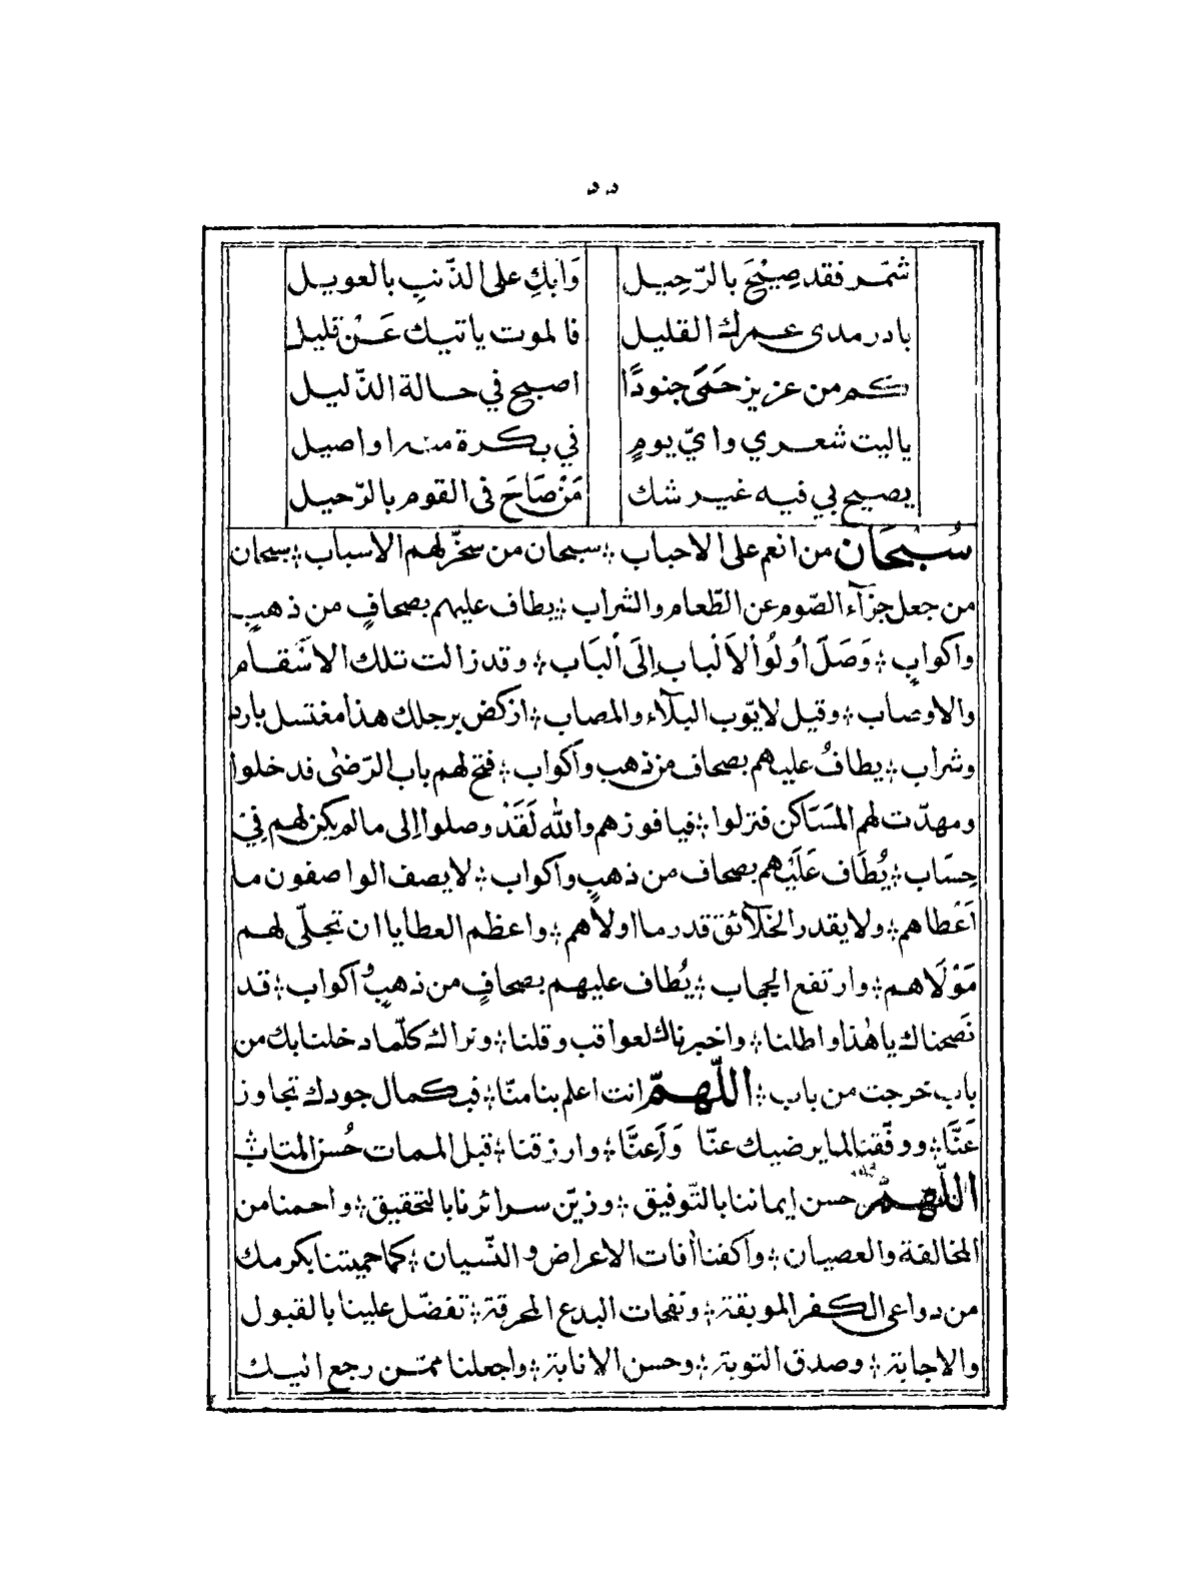 د د
شمّر فقد صِيْحَ بالرّحِيل وَابكِ على الذّنبِ بالعويل
بادر مدى عمرك القليل فالموت ياتيك عَنْ قليل
كم من عزيز حَمَىَ جنودًا اصبح في حالة الذّليل
ياليت شعري وايّ يومٍ في بكرة منه او اصيل
يصيح بي فيه غير شك مَنْ صَاحَ فى القوم بالرّحيل
سُبْحَان من انعم على الاحباب ؞ سبحان من سخّر لهم الاسباب ؞ سبحان
من جعل جزآء الصّوم عن الطّعام والشراب ؞ يطاف عليهم بصحافٍ من ذهبٍ
واكوابٍ ؞ وَصَلَ اُولُوْا الاَلْباب اِلَى اَلْبَاب ؞ وقد زالت تلك الاَسْقام
والاوصاب ؞ وقيل لايّوب البلآء والمصاب ؞ اركض برجلك هذا مغتسل بارد
وشراب ؞ يطافُ عليهم بصحاف من ذهب واكواب ؞ فتح لهم باب الرّضٰى فدخلوا
ومهدّت لهم المَسَاكن فنزلوا ؞ فيا فوزهم والله لَقَدْ وصلوا اِلى مالم يكن لهم فِي
حِسَاب ؞ يُطَاف عَلَيْهم بصحاف من ذهبٍ واكواب ؞ لايصف الواصفون ما
اَعْطاهم ؞ ولايقدر الخلآئق قدر ما اولاهم ؞ واعظم العطايا ان تجلّى لهم
مَوْلَاهم ؞ وارتفع الحجاب ؞ يُطاف عليهم بصحافٍ من ذهبٍ واكواب ؞ قد
نَصحناك ياهٰذا واطلنا ؞ واخبرناك لعواقب وقلنا ؞ ونراك كلّما دخلنا بك من
باب خرجت من باب ؞ اللّهمّ انت اعلم بنا منّا ؞ فبكمال جودك تجاوز
عَنَّا ؞ ووفّقنا لما يرضيك عنّا وَاَعِنَّا ؞ وارزقنا ؞ قبل الممات حُسن المتاب ؞
اللّهمّ حسن إيماننا بالتّوفيق ؞ وزيّن سرائرنا بالتحقيق ؞ واحمنا من
المخالفة والعصيان ؞ واكفنا اٰفات الاعراض والنّسيان ؞ كما حميتنا بكرمك
من دواعى الكفر الموبقة ؞ ونفحات البدع المحرقة ؞ تفضّل علينا بالقبول
والاجابة ؞ وصدق التوبة ؞ وحسن الانابة ؞ واجعلنا ممّن رجع اليك